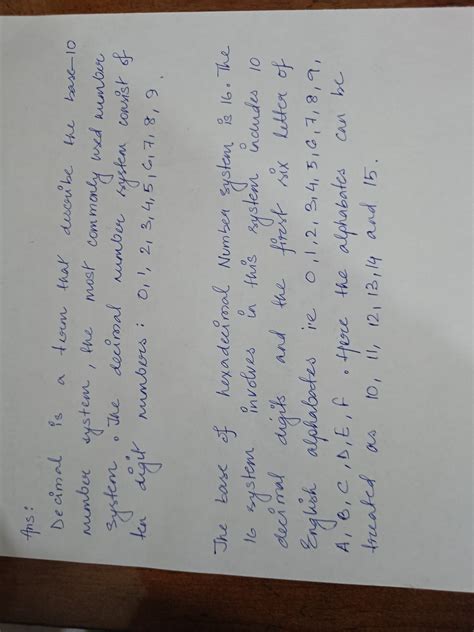 Ans:
Decimal is a term that describe the base-10
number system, the most commonly used number
system. The decimal number system consist of
ten digit numbers: 0, 1, 2, 3, 4, 5, 6, 7, 8, 9.
The base of hexadecimal Number system is 16. The
16 system involves in this system includes 10
decimal digits and the first six letter of
English alphabates ie 0, 1, 2, 3, 4, 5, 6, 7, 8, 9,
A, B, C, D, E, F. Here the alphabates can be
treated as 10, 11, 12, 13, 14 and 15.